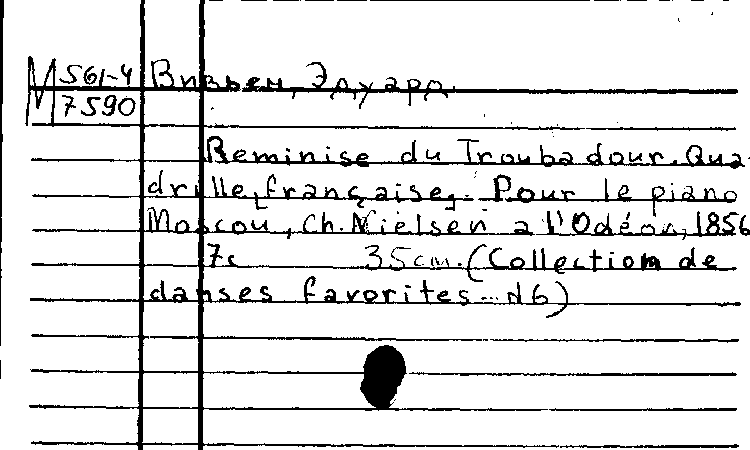 М 561-4 Вивьен, Эдуард.
7590
Reminise du Troubadour. Qua-
drille [française]. Pour le piano
Moscou, Ch. Nielsen a l'Odéon, 1856
7с 35см. (Collection de
danses favorites... №6)